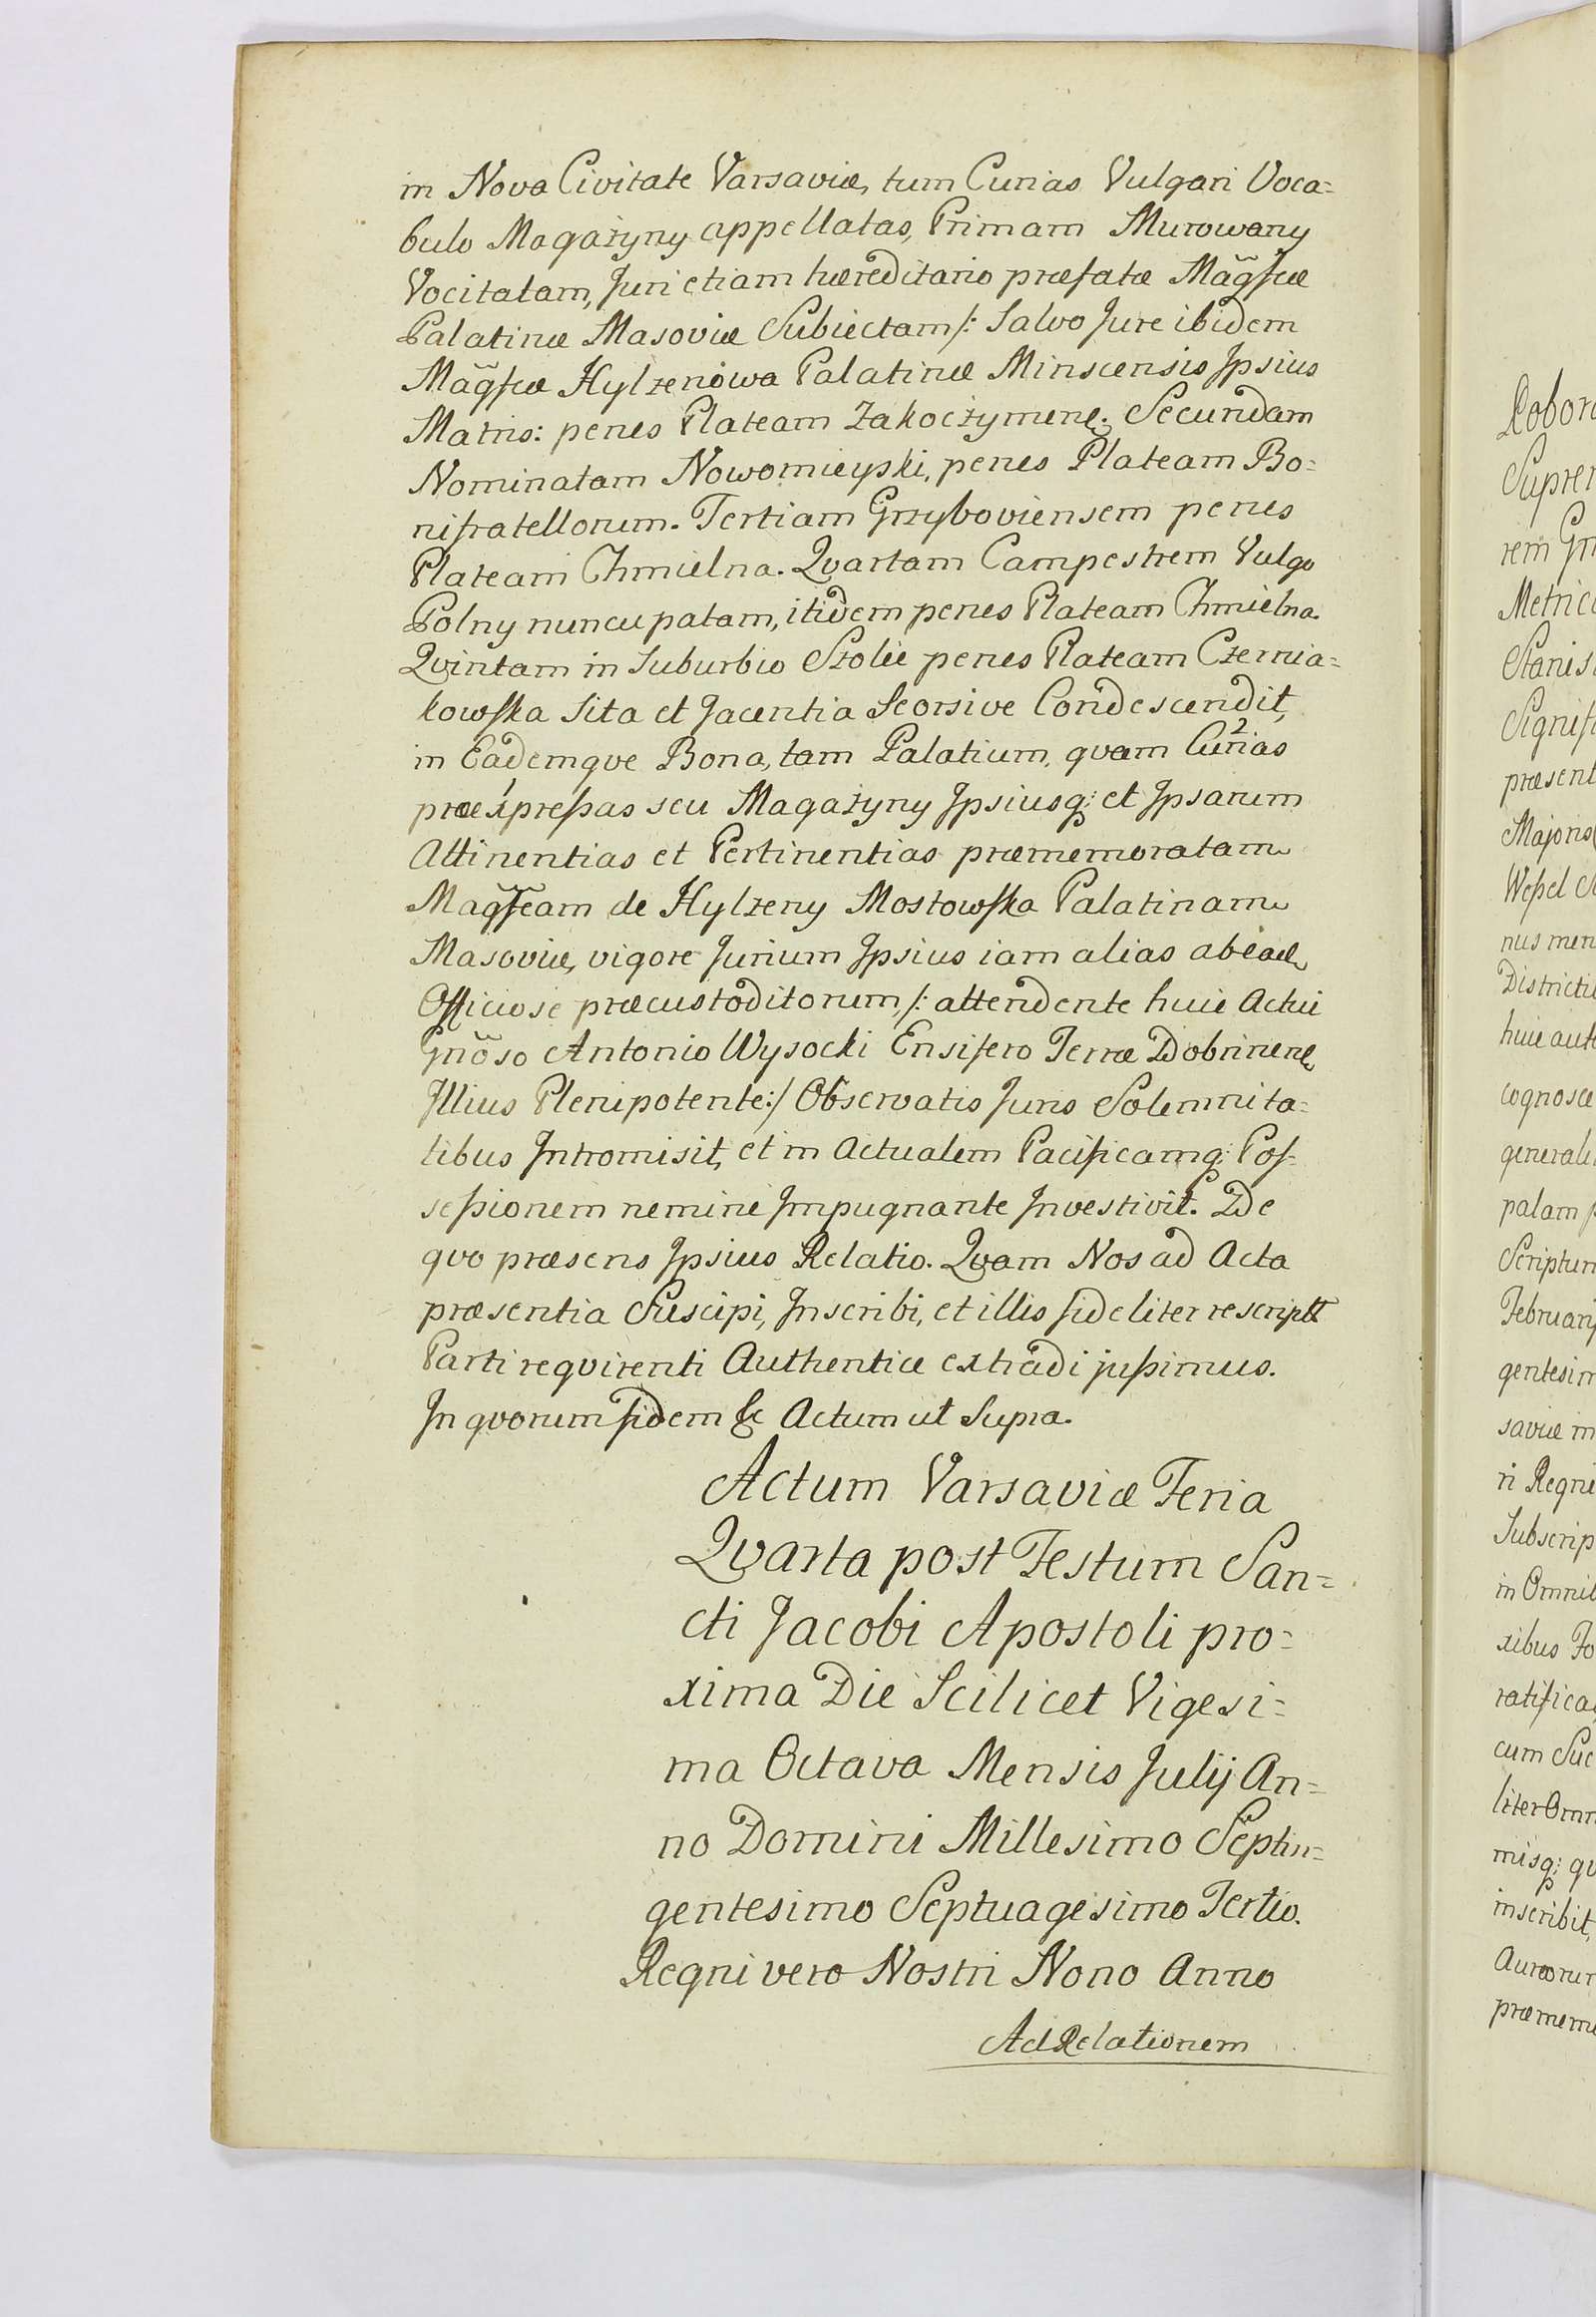 in Nova Civitate Varsaviæ, tum Curias Vulgari Voca=
bulo Magażyny appellatas, Primam Murowany
Vocitatam, Juri etiam hæreditario præfatæ Mãgfcæ
Palatinæ Masoviæ Subiectam /: Salvo Jure ibidem
Mãgfcæ Hylzenowa Palatinæ Minscensis Ipsius
Matris: penes Plateam Zakoczymens. Secundam
Nominatam Nowomieyski, penes Plateam Bo=
nifratellorum. Tertiam Grzyboviensem penes
Plateam Chmielna. Qvartam Campestrem Vulgo
Polny nuncupatam, itidem penes Plateam Chmielna.
Qvintam in Suburbio Szolie penes Plateam Czernia=
kowska Sita et Jacentia Seorsive Condescendit,
in Eademqve Bona, tam Palatium, qvam Curias
præexpressas seu Magażyny Ipsiusq; et Ipsarum
Attinentias et Pertinentias præmemoratam
Magfcam de Hylzeny Mostowska Palatinam
Masoviæ, vigore Jurium Ipsius iam alias ab eae
Officiose præcustoditorum, /: attendente huic Actui
Gnõso Antonio Wysocki Ensifero Terræ Dobrinens
Illius Plenipotente :/ Observatis Juris Solemnita=
tibus Intromisit, et in Actualem Pacificamq; Pos=
sessionem nemine Impugnante Investivit. De
qvo præsens Ipsius Relatio. Qvam Nos ad Acta
præsentia Suscipi, Inscribi, et illis fideliter rescriptt
Parti reqvirenti Authentice extradi jussimus.
In qvorum fidem &c Actum ut Supra.
Actum Varsaviæ Feria
Qvarta post Festum San=
cti Jacobi Apostoli pro=
xima Die Scilicet Vigesi=
ma Octava Mensis Julij An=
no Domini Millesimo Septin=
gentesimo Septuagesimo Tertio.
Regni vero Nostri Nono Anno
Ad Relationem
Robor
Supre
rem Gn
Metric
Stanis
Signif
præsent
Majoris
Wessel
nus men
District
huic aut
cognosce
general
palam
Scriptur
Februarij
gentesim
saviæ in
ri Regni
Subscrip
in Omnib
xibus Fo
ratifica
cum Suc
liter Omn
misq; qv
inscribit,
Aureorum
præmemo